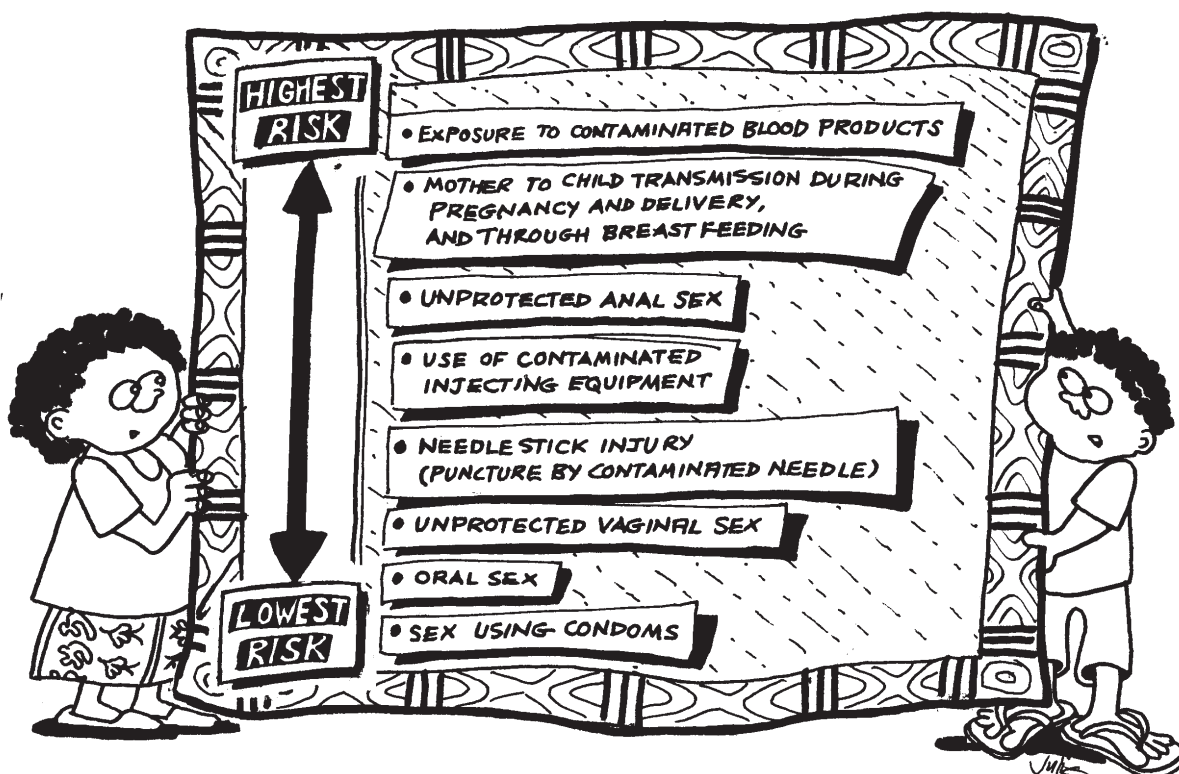 HIGHEST
RISK
• EXPOSURE TO CONTAMINATED BLOOD PRODUCTS
• MOTHER TO CHILD TRANSMISSION DURING
PREGNANCY AND DELIVERY,
AND THROUGH BREAST FEEDING
• UNPROTECTED ANAL SEX
• USE OF CONTAMINATED
INJECTING EQUIPMENT
• NEEDLE STICK INJURY
(PUNCTURE BY CONTAMINATED NEEDLE)
• UNPROTECTED VAGINAL SEX
• ORAL SEX
• SEX USING CONDOMS
LOWEST
RISK